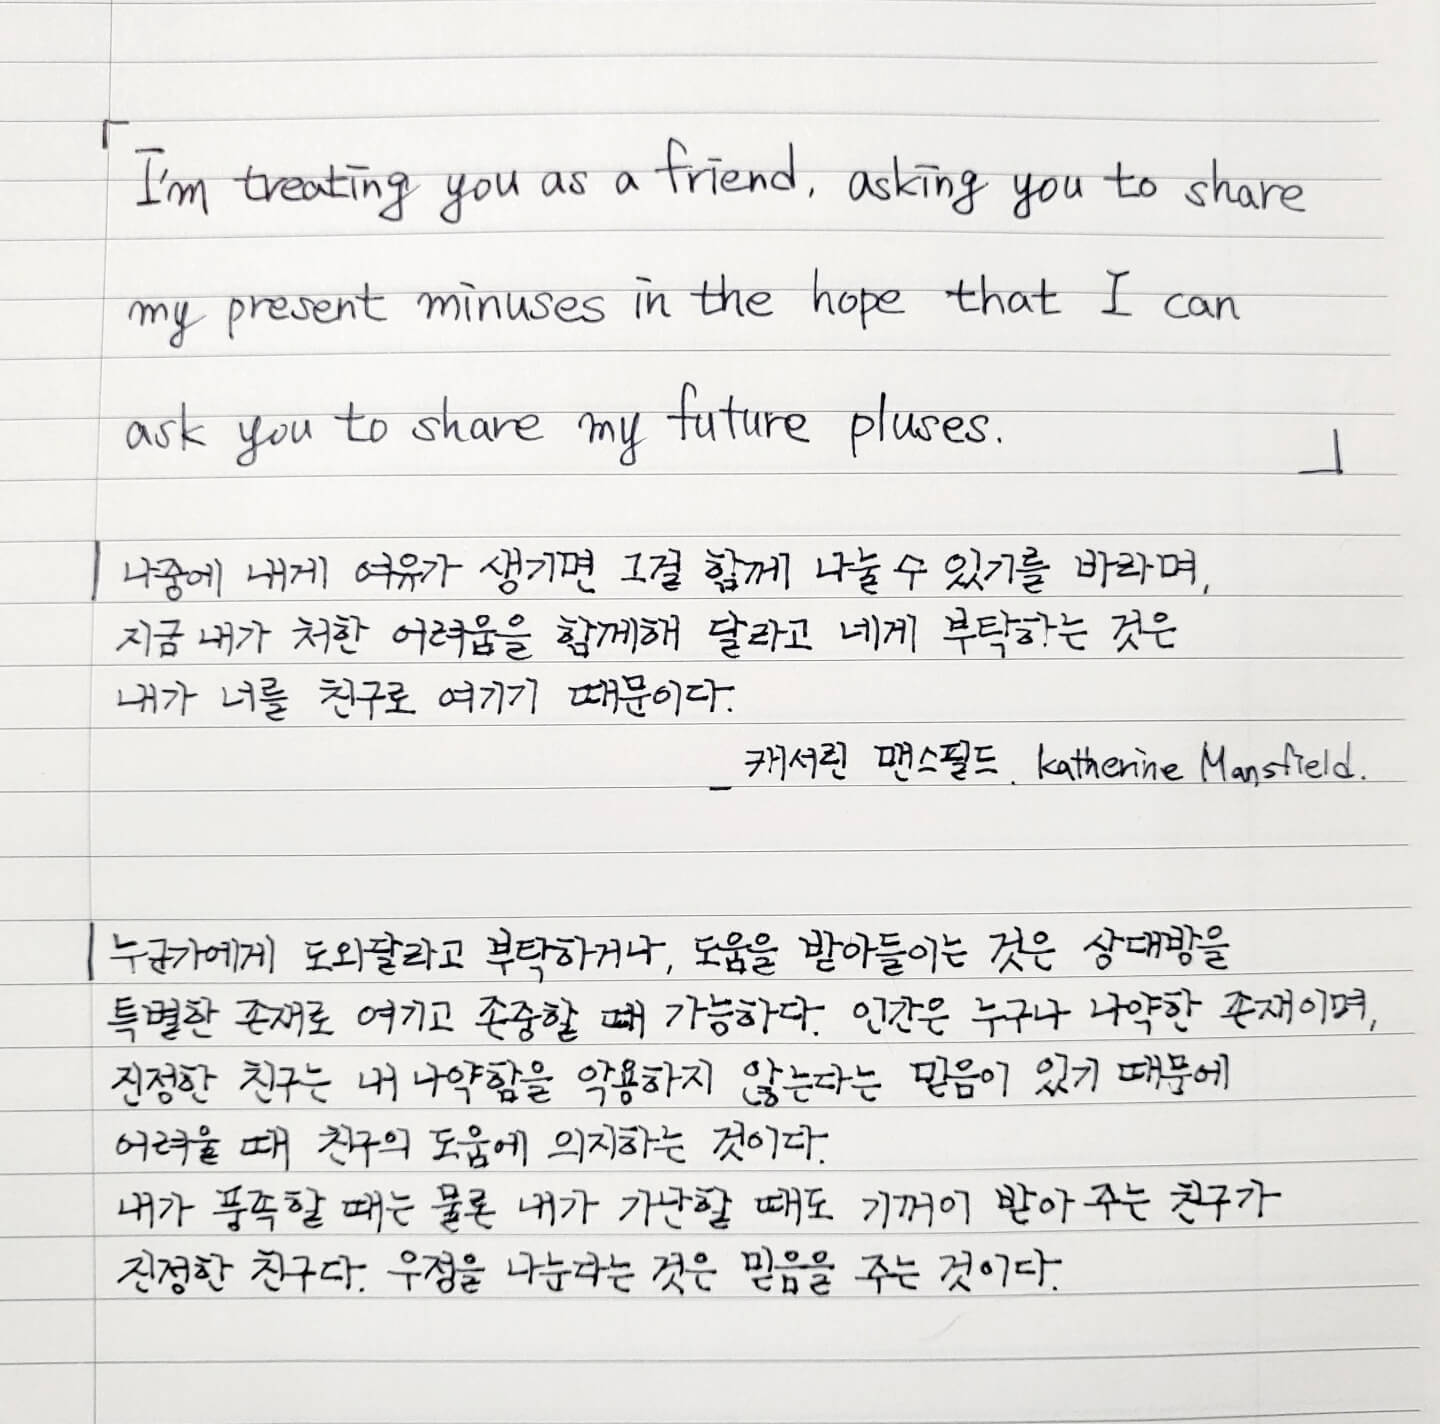 「I'm treating you as a friend, asking you to share
my present minuses in the hope that I can
ask you to share my future pluses.」
나중에 내게 여유가 생기면 그걸 함께 나눌 수 있기를 바라며,
지금 내가 처한 어려움을 함께해 달라고 네게 부탁하는 것은
내가 너를 친구로 여기기 때문이다.
_ 캐서린 맨스필드. Katherine Mansfield.
누군가에게 도와달라고 부탁하거나, 도움을 받아들이는 것은 상대방을
특별한 존재로 여기고 존중할 때 가능하다. 인간은 누구나 나약한 존재이며,
진정한 친구는 내 나약함을 악용하지 않는다는 믿음이 있기 때문에
어려울 때 친구의 도움에 의지하는 것이다.
내가 풍족할 때는 물론 내가 가난할 때도 기꺼이 받아 주는 친구가
진정한 친구다. 우정을 나눈다는 것은 믿음을 주는 것이다.